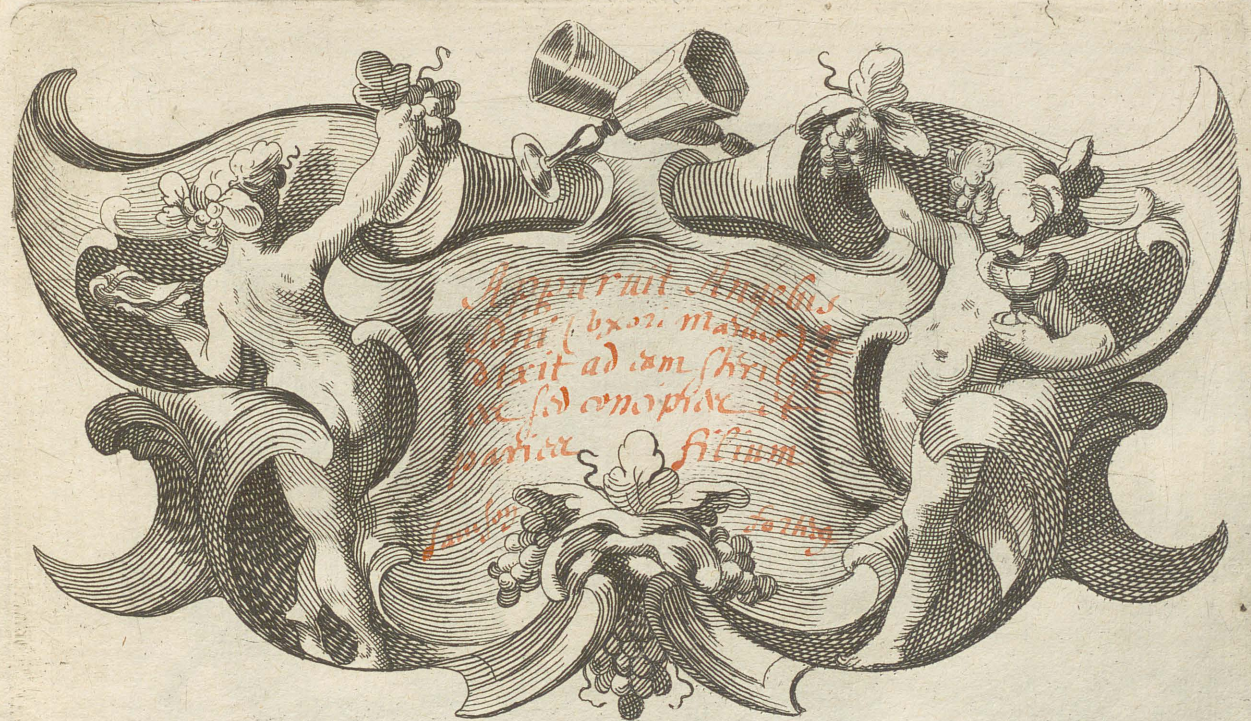 Apparuit Angelus
Dni (vxori Manue) &
dixit ad eam Sterilis
es sed concipies &
paries filium
Samson fortis